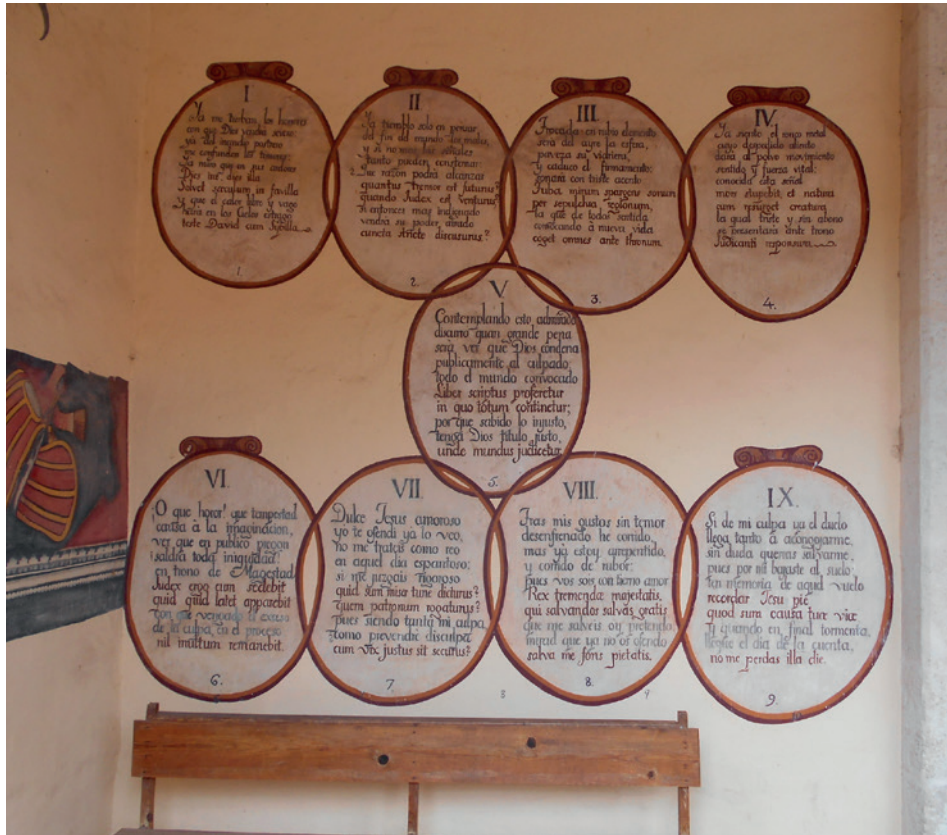 I
Ya me turban los horrores
con que Dios vendrá severo:
ya del incendio postrero
me confunden los
ya miro que en sus ardores
Dies iræ, dies illa
Solvet sæculum in favilla
y que el saber
en los Cielos
teste David cum Sybilla
1.
II
Ya tiemblo solo en pensar
del fin del mundo los males,
y si no mas las señales
tanto pueden consternar:
Que razon podrá alcanzar
quantus tremor est futurus?
quando Judex est venturus
Si entonces mas indignado
vendra su poder airado
cuncta stricte discusurus?
2.
III
Trocada en rubio elemento
será del ayre la esfera,
paveza su vidriera,
y caduco el firmamento:
sonará con triste acento
Tuba mirum spargens sonum
per sepulchra regionum,
la que de todos sentida
convocando á nueva vida
coget omnes ante thronum.
3.
IV
Ya siento el ronco metal
cuyo despedido aliento
dará al polvo movimiento
sentido y fuerza vital:
conocida esta señal
mors stupebit et natura
cum resurget creatura
la qual triste y sin abono
se presentara ante trono
Judicanti responsura
4.
V
Contemplando esto, admirado
discurro quan grande pena
será ver que Dios condena
publicamente al culpado
todo el mundo convocado
Liber scriptus proferetur
in quo totum continetur;
por que sabido lo injusto,
tenga Dios titulo justo,
unde mundus judicetur
5.
VI
¡O que horor! que tempestad
causa á la imaginacion,
ver que en publico pregon
saldra toda iniquidad!
en trono de Magestad
Judex ergo cum sedebit
quid quid latet apparebit
con que vengado el exceso
de la culpa, en el proceso
nil inultum remanebit.
6.
VII
Dulce Jesus amoroso
yo te ofendi ya lo veo,
no me trateis como reo
en aquel dia espantoso:
si me juzgais rigoroso
quid sum misa tunc dicturus?
Quem patronum rogaturus?
pues siendo tanta mi culpa
como prevendré disculpa
cum vix justus sit securus?
7.
VIII
Tras mis gustos sin temor
desenfrenado he corrido,
mas ya estoy arrepentido,
y corrido de mi
pues vos sois con tierno amor
Rex tremendæ majestatis,
qui salvandos salvas gratis
que me salveis oy pretendo
mirad que ya no os ofendo
salva me fons pietatis.
8.
IX
Si de mi culpa ya el duelo
llega tanto á acongojarme,
sin duda querras salvarme,
pues por mi bajaste al suelo:
ten memoria de aquel vuelo
recordar Jesu pie
quod sum causa tuæ viæ
Y quando en final tormenta,
llegue el dia de la cuenta,
no me perdas illa die.
9.